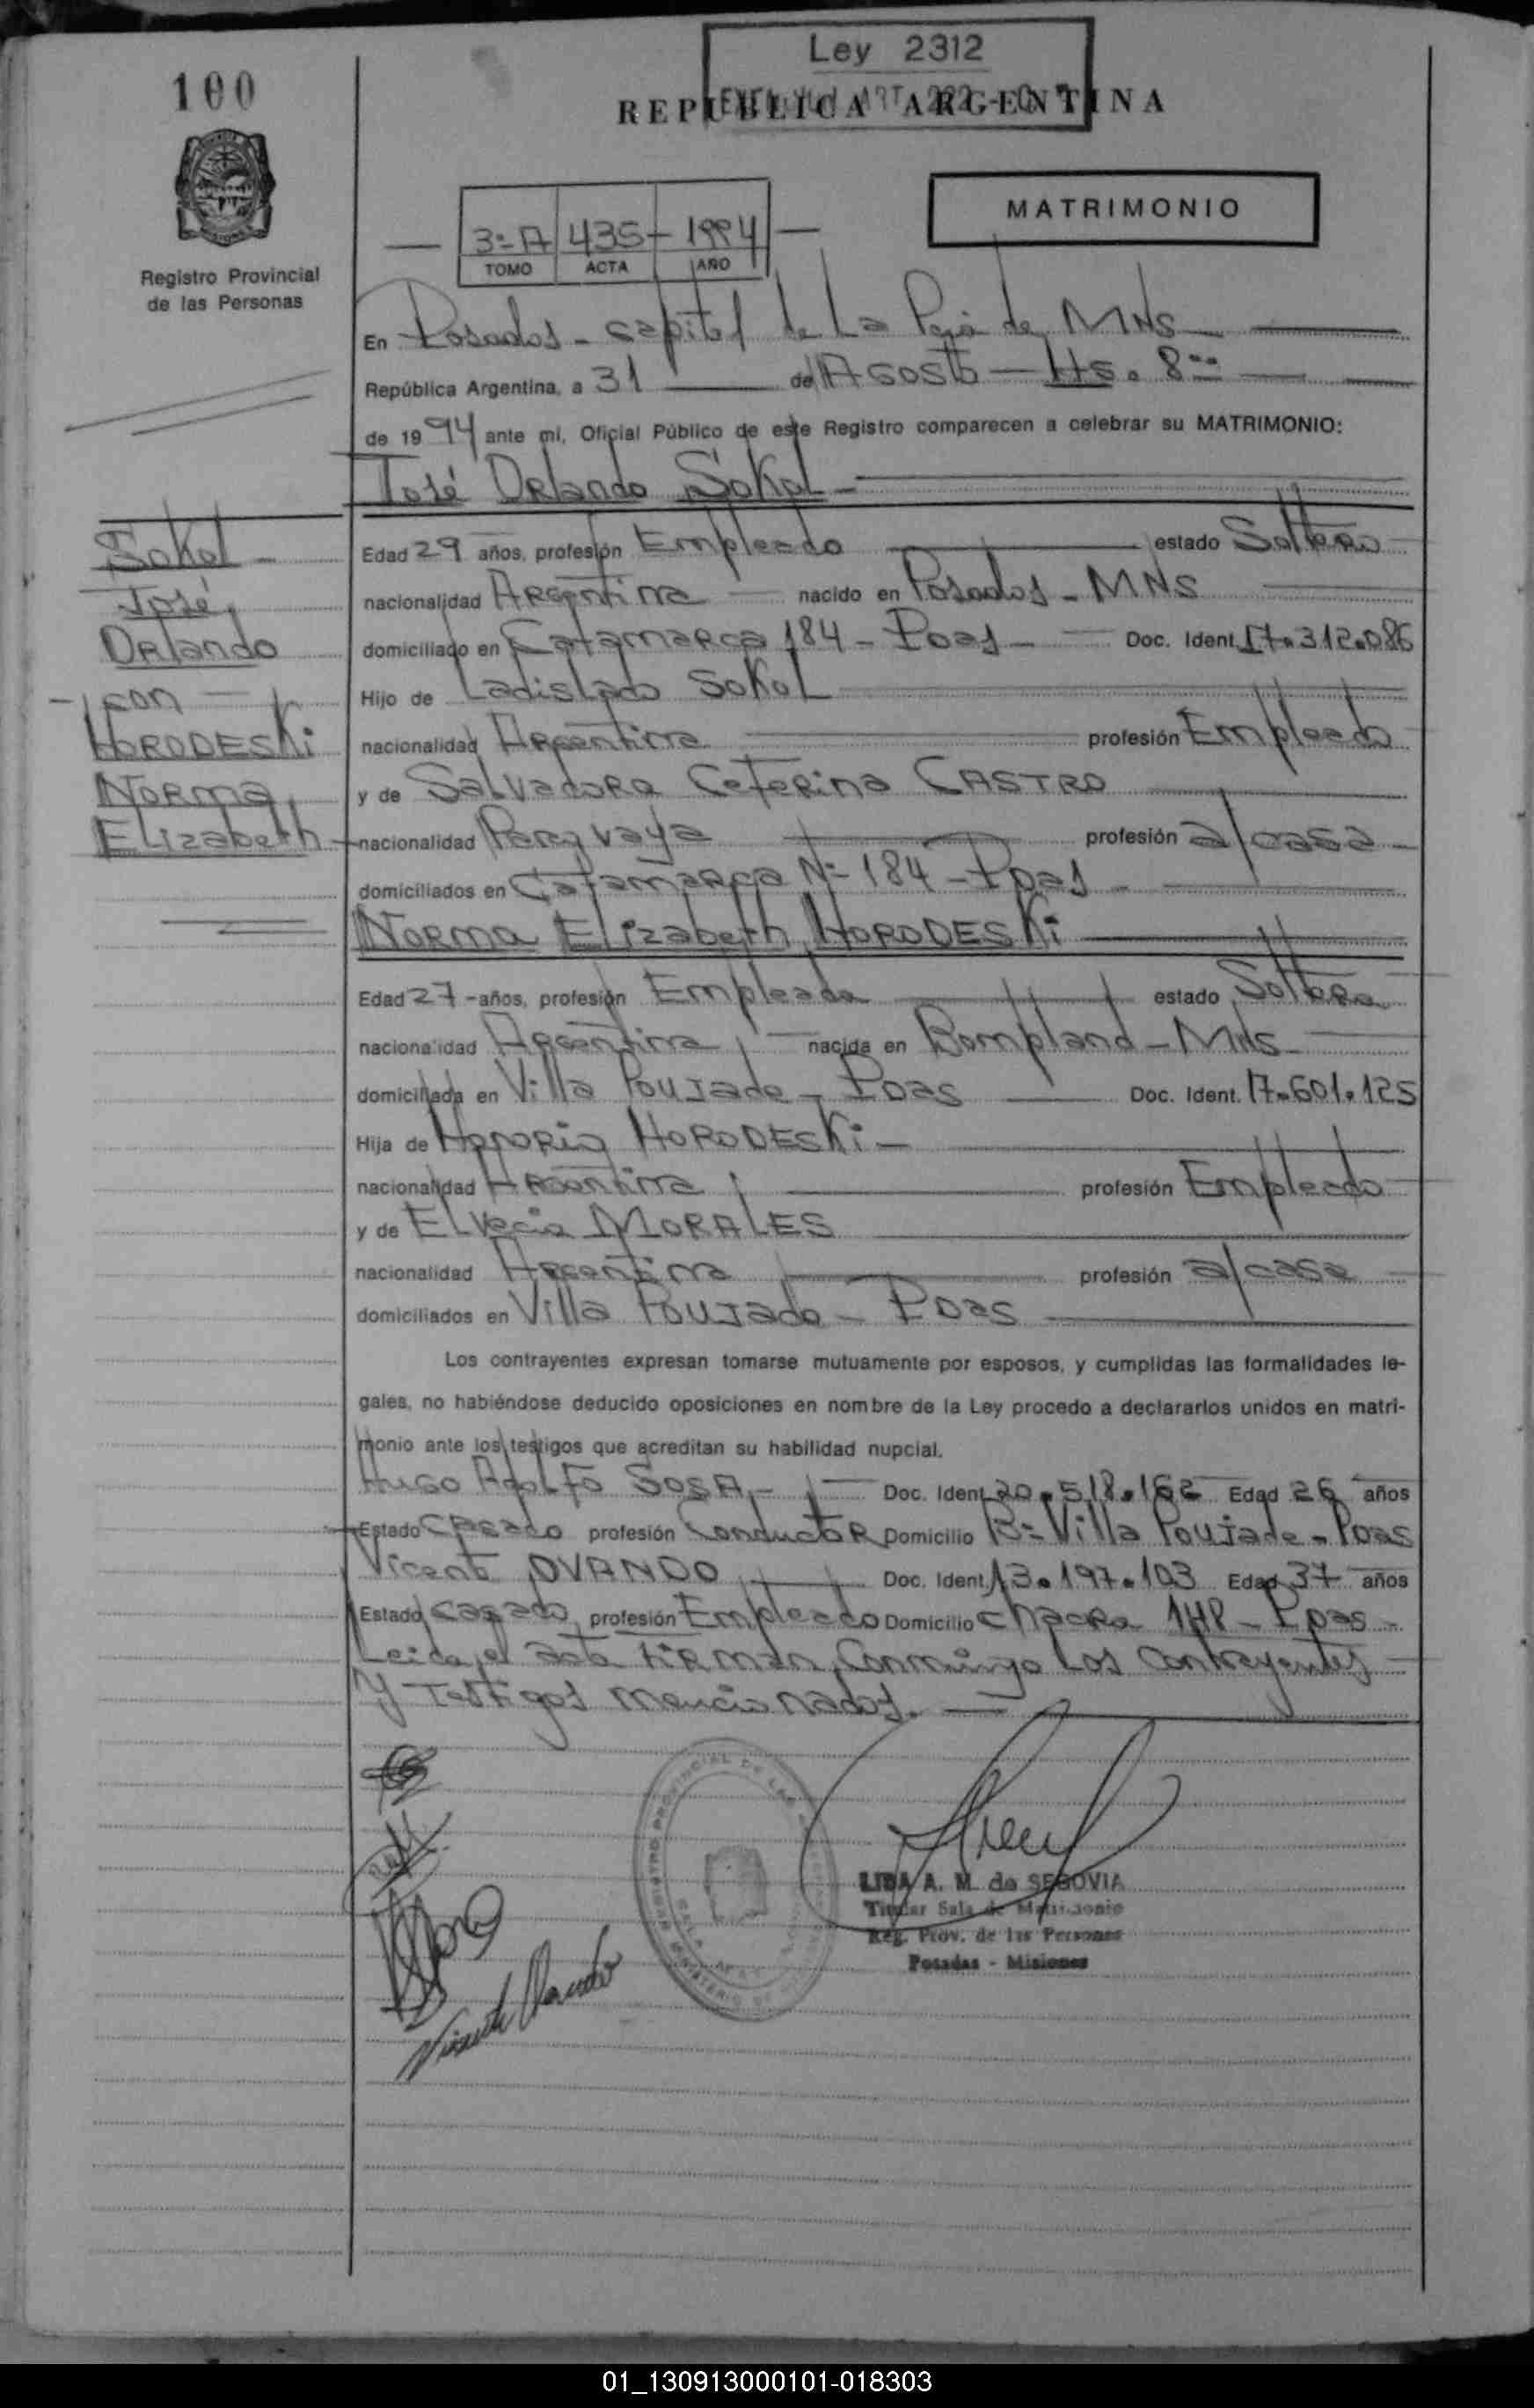 Ley 2312
100
REPUBLICA ARGENTINA
MATRIMONIO
3º A 435 - 1994
TOMO ACTA AÑO
Registro Provincial
de las Personas
En Posadas - capital de La Pcia de MNS
República Argentina, a 31 de Agosto - Hs. 8
de 1994 ante mi, Oficial Público de este Registro comparecen a celebrar su MATRIMONIO:
José Orlando Sokol
Sokol
José
Orlando
con
HORODESKi
Norma
Elizabeth
Edad 29 años, profesión Empleado estado Soltero
nacionalidad Argentina nacido en Posadas - MNS
domiciliado en Catamarca 184 - Pdas Doc. Ident. 17.312.086
Hijo de Ladislado Sokol
nacionalidad Argentina profesión Empleado
y de Salvadora Ceferina CASTRO
nacionalidad Paraguaya profesión a/casa
domiciliados en Catamarca Nº 184 - Pdas
Norma Elizabeth HORODESKi
Edad 27 años, profesión Empleada estado Soltera
nacionalidad Argentina nacida en Bompland - MNS
domiciliada en Villa Poujade - Pdas Doc. Ident. 17.601.125
Hija de Honorio HORODESKi
nacionalidad Argentina profesión Empleado
y de MORALES
nacionalidad Argentina profesión a/casa
domiciliados en Villa Poujade - Pdas
Los contrayentes expresan tomarse mutuamente por esposos, y cumplidas las formalidades le-
gales, no habiéndose deducido oposiciones en nombre de la Ley procedo a declararlos unidos en matri-
monio ante los testigos que acreditan su habilidad nupcial.
Hugo Adolfo SOSA Doc. Ident. 20.518.162 Edad 26 años
Estado casado profesión Conductor Domicilio Bº Villa Poujade - Pdas
Vicente OVANDO Doc. Ident. 13.197.103 Edad 37 años
Estado casado profesión Empleado Domicilio chacra 148 - Pdas
Leida el acta firman, Conmigo Los Contrayentes
y Testigos mencionados.
LIDA A. M. de SEGOVIA
Titular Sala de Matrimonio
Reg. Prov. de las Personas
Posadas - Misiones
01_130913000101-018303